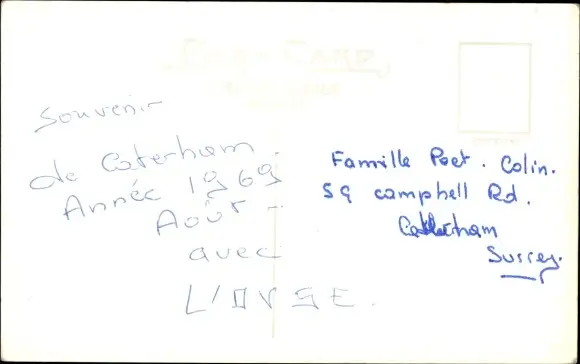 Post Card
Souvenir
de Caterham.
Année 1969
Août -
avec
L'OVSE.
Famille Poet. Colin.
59 campbell Rd.
Caterham
Surrey.